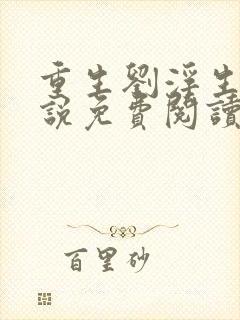 重生劉淫生
說免費閱讀
百里砂